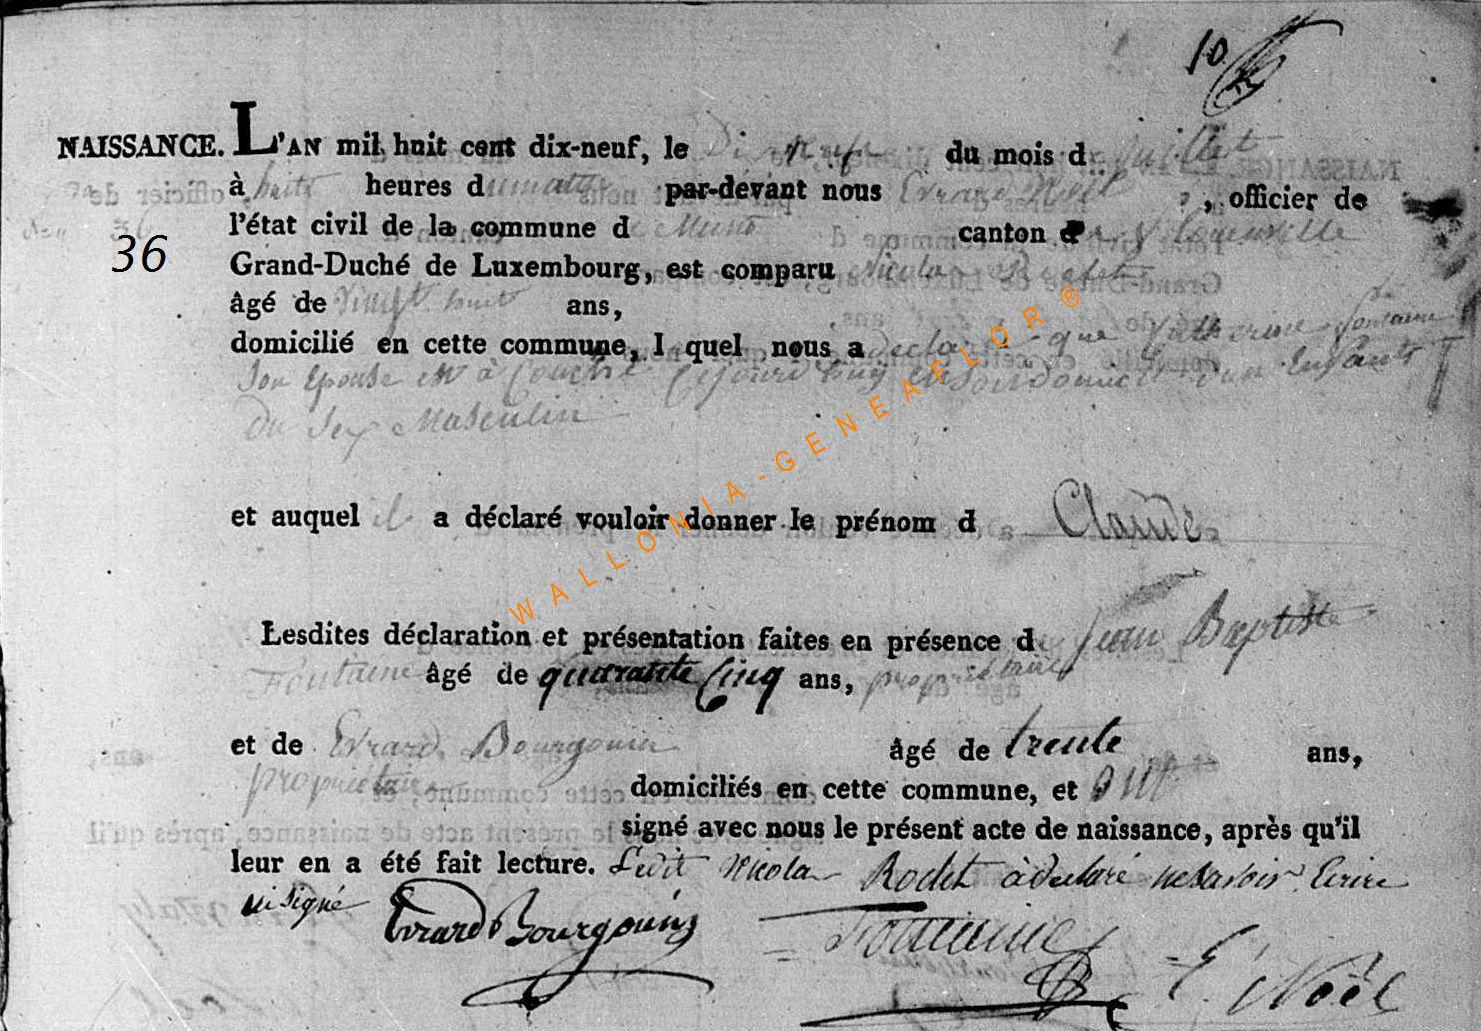 10
NAISSANCE. L'AN mil huit cent dix-neuf, le Dix neuf du mois d juillet
à huit heures d u matin par-devant nous Evrard Noël, officier de
l'état civil de la commune d e Muno canton d e florenville
36
Grand-Duché de Luxembourg, est comparu Nicolas Rodet
âgé de Vingt huit ans,
domicilié en cette commune, l quel nous a declaré que Catherine fontaine
Son Epouse est à Couché Cejourd'huy d'un Enfant
Du Sex Masculin
et auquel il a déclaré vouloir donner le prénom d Claude
Lesdites déclaration et présentation faites en présence de Jean Baptiste
Fontaine âgé de quarante Cinq ans, proprietaire
et de Evrard Bourgouin âgé de trente ans,
proprietaire domiciliés en cette commune, et ont
signé avec nous le présent acte de naissance, après qu'il
leur en a été fait lecture. Ledit Nicolas Rodet à declaré ne Savoir Ecrire
ni Signé
Evrard Bourgouin Fontaine E. Noël
WALLONIA-GENEAFLOR ®